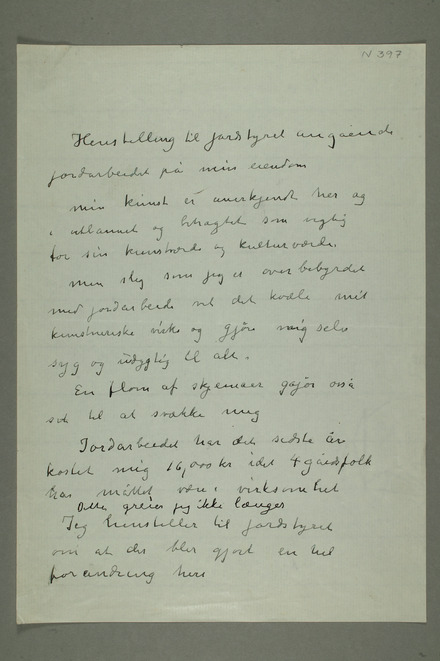 N 397
Henstilling til jordstyret angående
jordarbeidet på min eiendom
min kunst er anerkjendt her og
i utlannet og betragtet som vigtig
for sin kunstværdi og kulturværdi.
men slig som jeg er overbebyrdet
med jordarbeide vil det kvæle mit
kunstneriske virke og gjøre mig selv
syg og udygtig til alt.
En flom af skjemaer gjør også
sit til at svække mig
Jordarbeidet har det sidste år
kostet mig 16,000 kr idet 4 gårdsfolk
har måttet være i virksomhet
Dette greier jeg ikke længer
Jeg henstiller til jordstyret
om at der blir gjort en hel
forandring heri